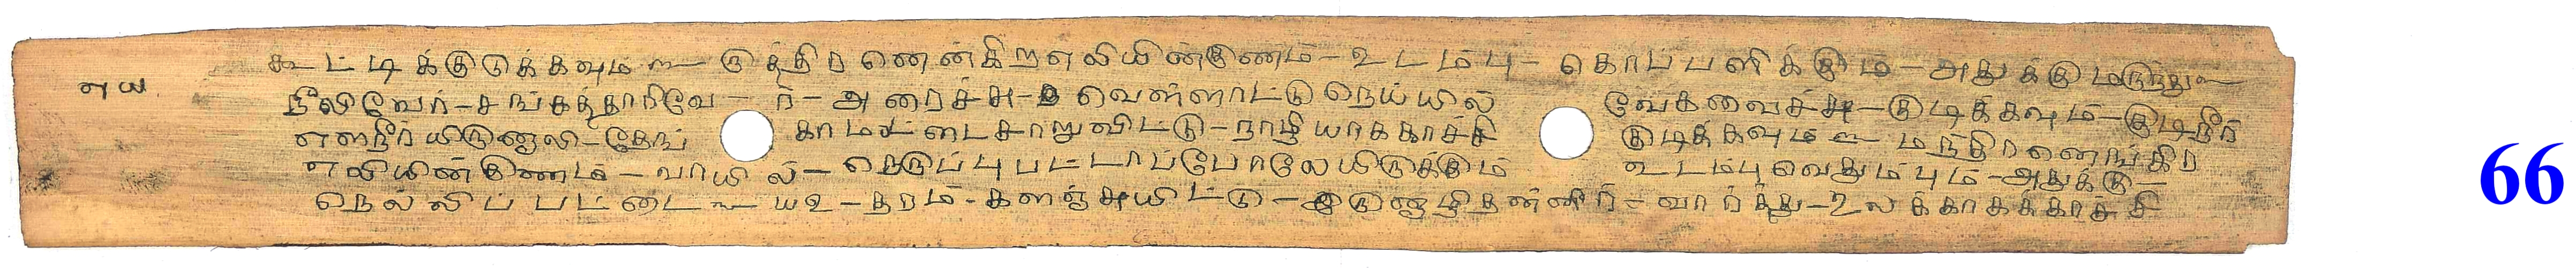 எய
கூட்டிக்குடுக்கவும் ௳ ருத்திரனென்கிறஎலியின்குணம் - உடம்பு - கொப்பளிக்கும் - அதுக்கு மருந்து ௳
நீலிவேர் - சங்கத்தாரிவே - ர் - அரைச்சு - வெள்ளாட்டு நெய்யில் வேகவைச்சு - குடிக்கவும் - குடிநீர்
எளநீர் யிருணாலி - தேங் காமட்டைசாறுவிட்டு - நாழியாககாச்சி குடிக்கவும் ௳ மந்திரனெங்கிற
எலியின்குணம் - வாயில் - நெருப்புபட்டாப்போலேயிருக்கும் உடம்பு வெதும்பும் - அதுக்கு -
நெல்லிப் பட்டை ௳ ய௨ - தரம் - களஞ்சுயிட்டு - இருனாழிதண்ணீர் - வார்த்து - உலக்காகக்காச்சி
66